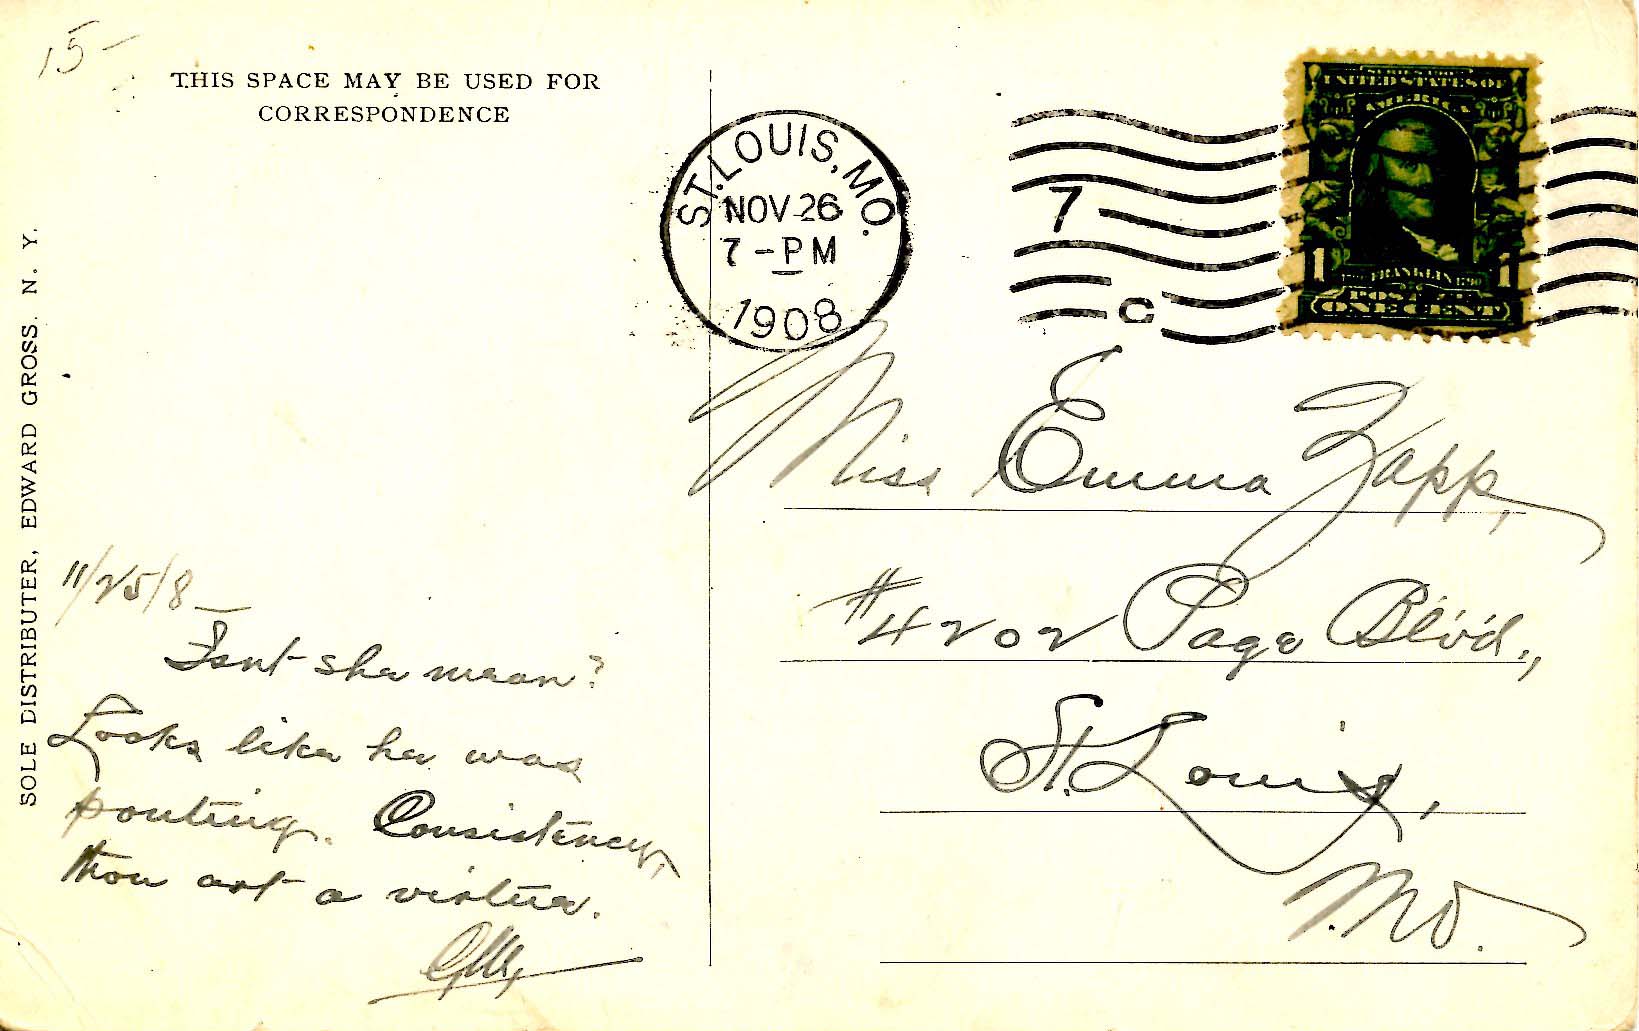 15-
THIS SPACE MAY BE USED FOR
CORRESPONDENCE
SOLE DISTRIBUTER, EDWARD GROSS. N. Y.
ST. LOUIS, MO.
NOV 26
7-PM
1908
7
C
UNITED STATES OF
AMERICA
FRANKLIN
1 1
POSTAGE
ONE CENT
Miss Emma Zapp,
#4202 Page Blvd.,
St. Louis,
Mo.
11/25/8
Isnt she mean?
Looks like he was
pouting. Consistency,
thou art a virtue.